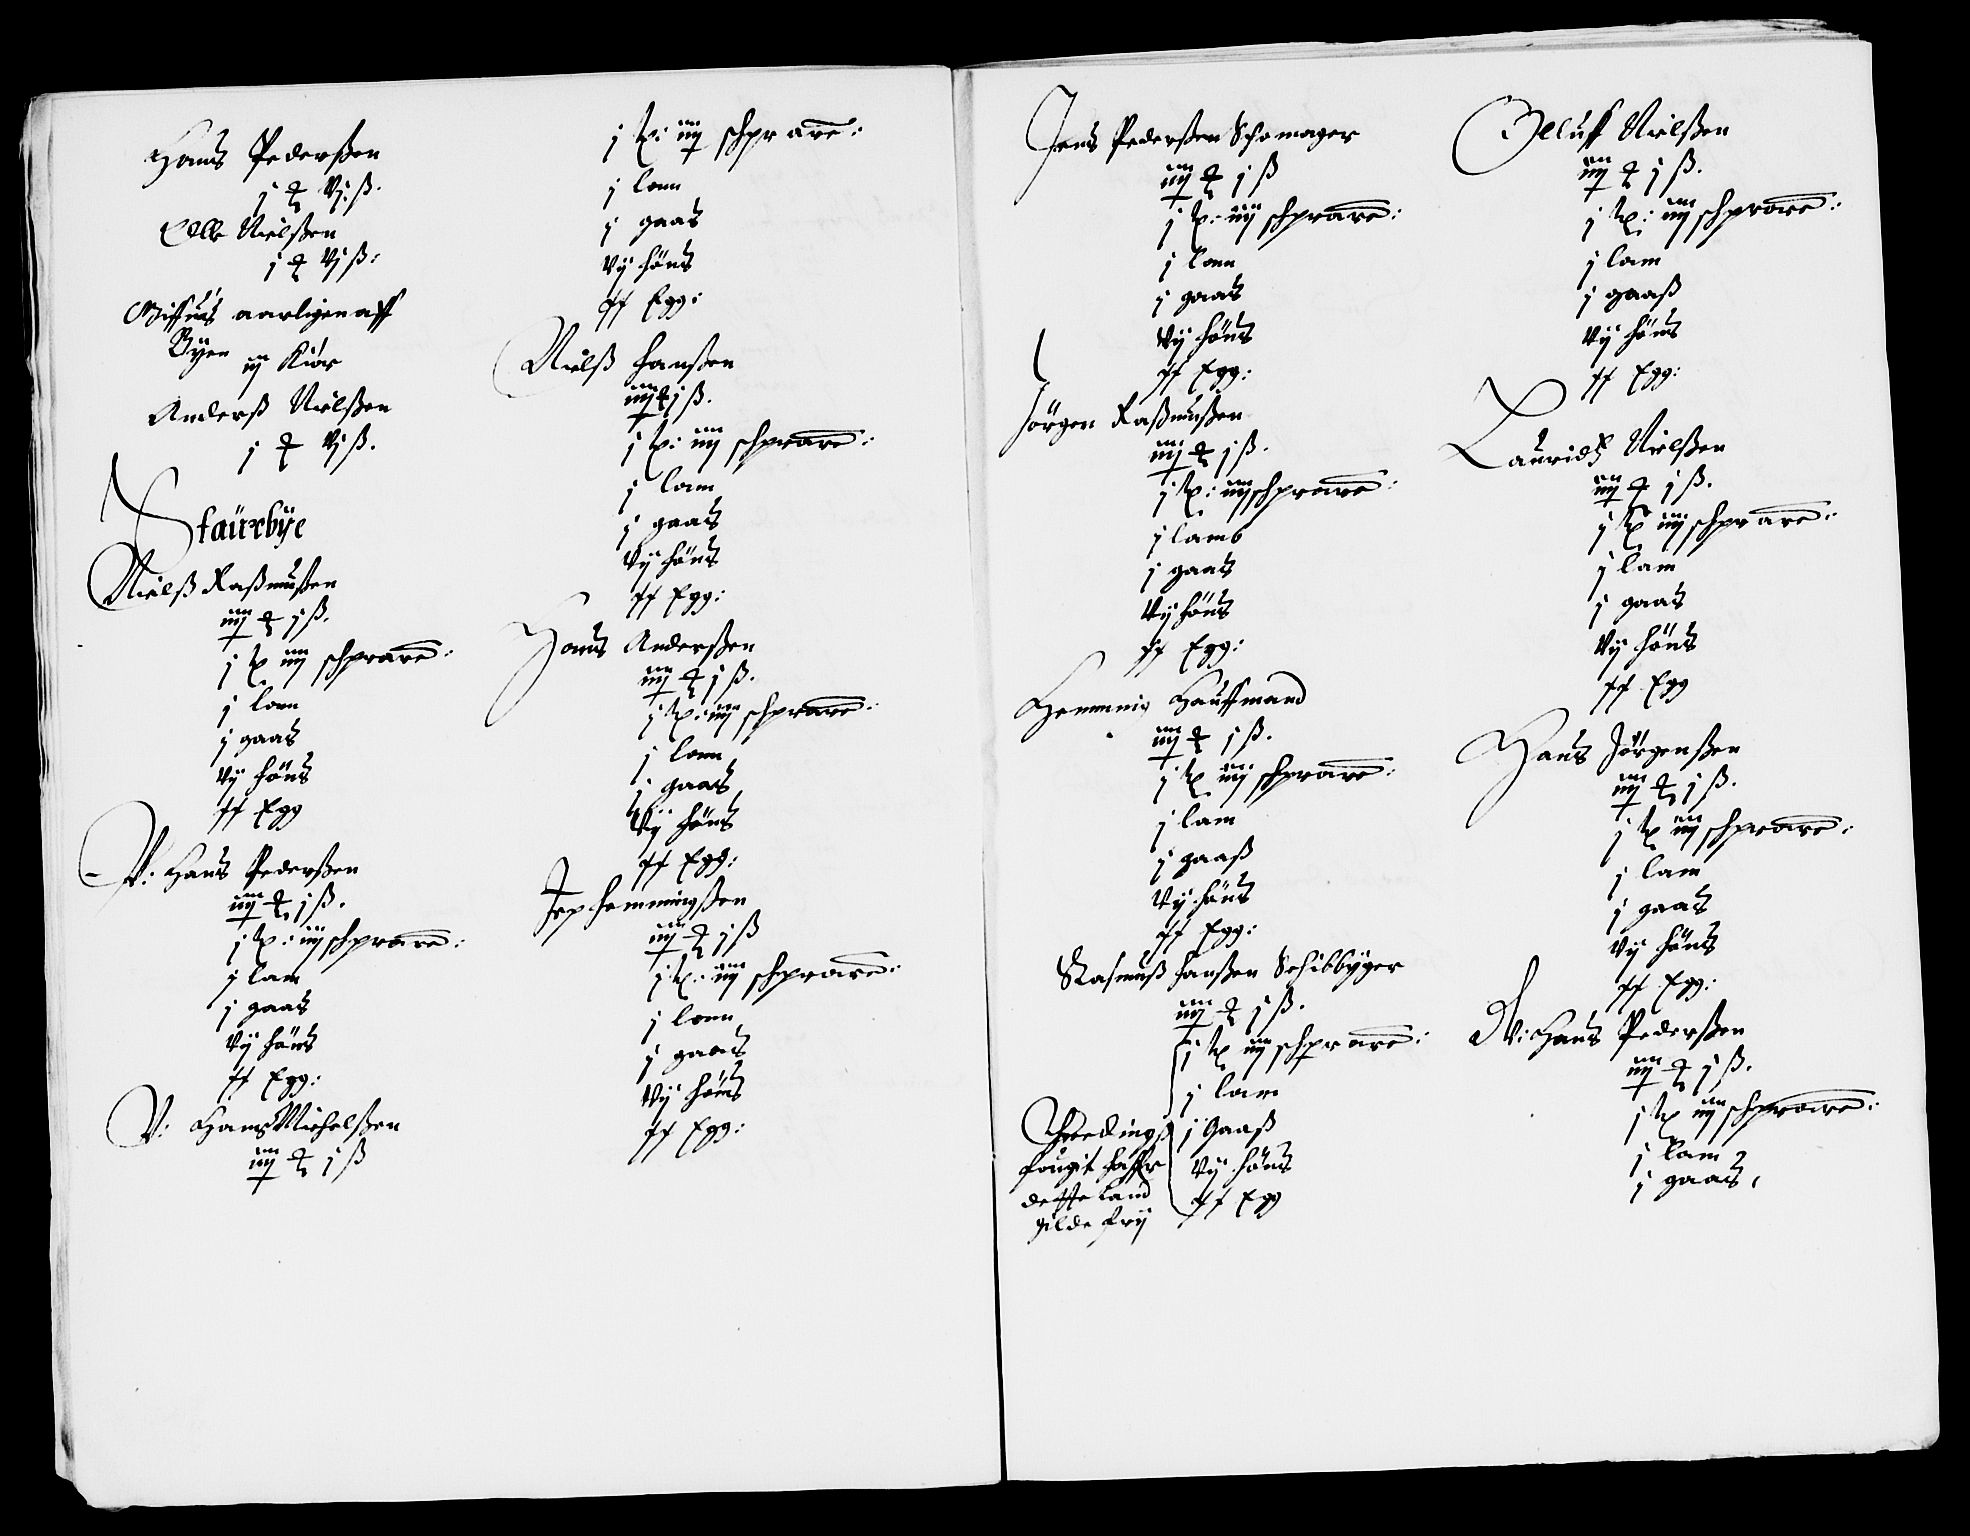 Hans Pederßen
j ꝑ vj ß.
Elle Nielßen
j ꝑ vj ß:
Giffuis aarligen aff
Byen iij Kiør
Anderß Nielßen
j ꝑ vj ß.
Staurbÿe
Nielß Raßmußen
iiij ꝑ j ß.
j iiij schpr are:
j lam
j gaas
vij höns
xx Egg
V: Hans Pederßen
iiij ꝑ j ß.
j iiij schpr are:
j lam
j gaas
vij höns
xx Egg:
V: Hans Michelßen
iiij ꝑ j ß
j iiij schpr are:
j lam
j gaas
vij höns
xx Egg:
Nielß Hanßen
iiij ꝑ j ß.
j iiij schpr are:
j lam
j gaas
vij höns
xx Egg:
Hans Anderßen
iiij ꝑ j ß.
j iiij schpr are:
j lam
j gaas
vij höns
xx Egg:
Jep Hemmingßen
iiij ꝑ j ß
j iiij schpr are:
j lam
j gaas
vij höns
xx Egg:
Jens Pederßen Schomager
iiij ꝑ j ß
j iiij schpr are:
j lam
j gaas
vij höns
xx Egg:
Jörgen Raßmußen
iiij ꝑ j ß.
j iiij schpr are:
j lamb
j gaas
vij höns
xx Egg:
Hemming Hauffmand
iiij ꝑ j ß.
j iiij schpr are:
j lam
j gaaß
vij höns
xx Egg:
Rasmuß Hanßen Schibbÿger
iiij ꝑ j ß.
j iiij schpr are:
j lam
j Gaaß
vij höns
xx Egg
Herredingß
fougit haffr
dette Land
gilde frij
Olluff Nielßen
iiij ꝑ j ß.
j iiij schpr are:
j lam
j gaaß
vij höns
xx Egg:
Lauridtz Nielßen
iiij ꝑ j ß.
j iiij schpr are:
j lam
j gaas
vij höns
xx Egg
Hans Jörgenßen
iiij ꝑ j ß.
j iiij schpr are:
j lam
j gaas
vij höns
xx Egg:
V: Hans Pederßen
iiij ꝑ j ß.
j iiij schpr are:
j lam
j gaas,